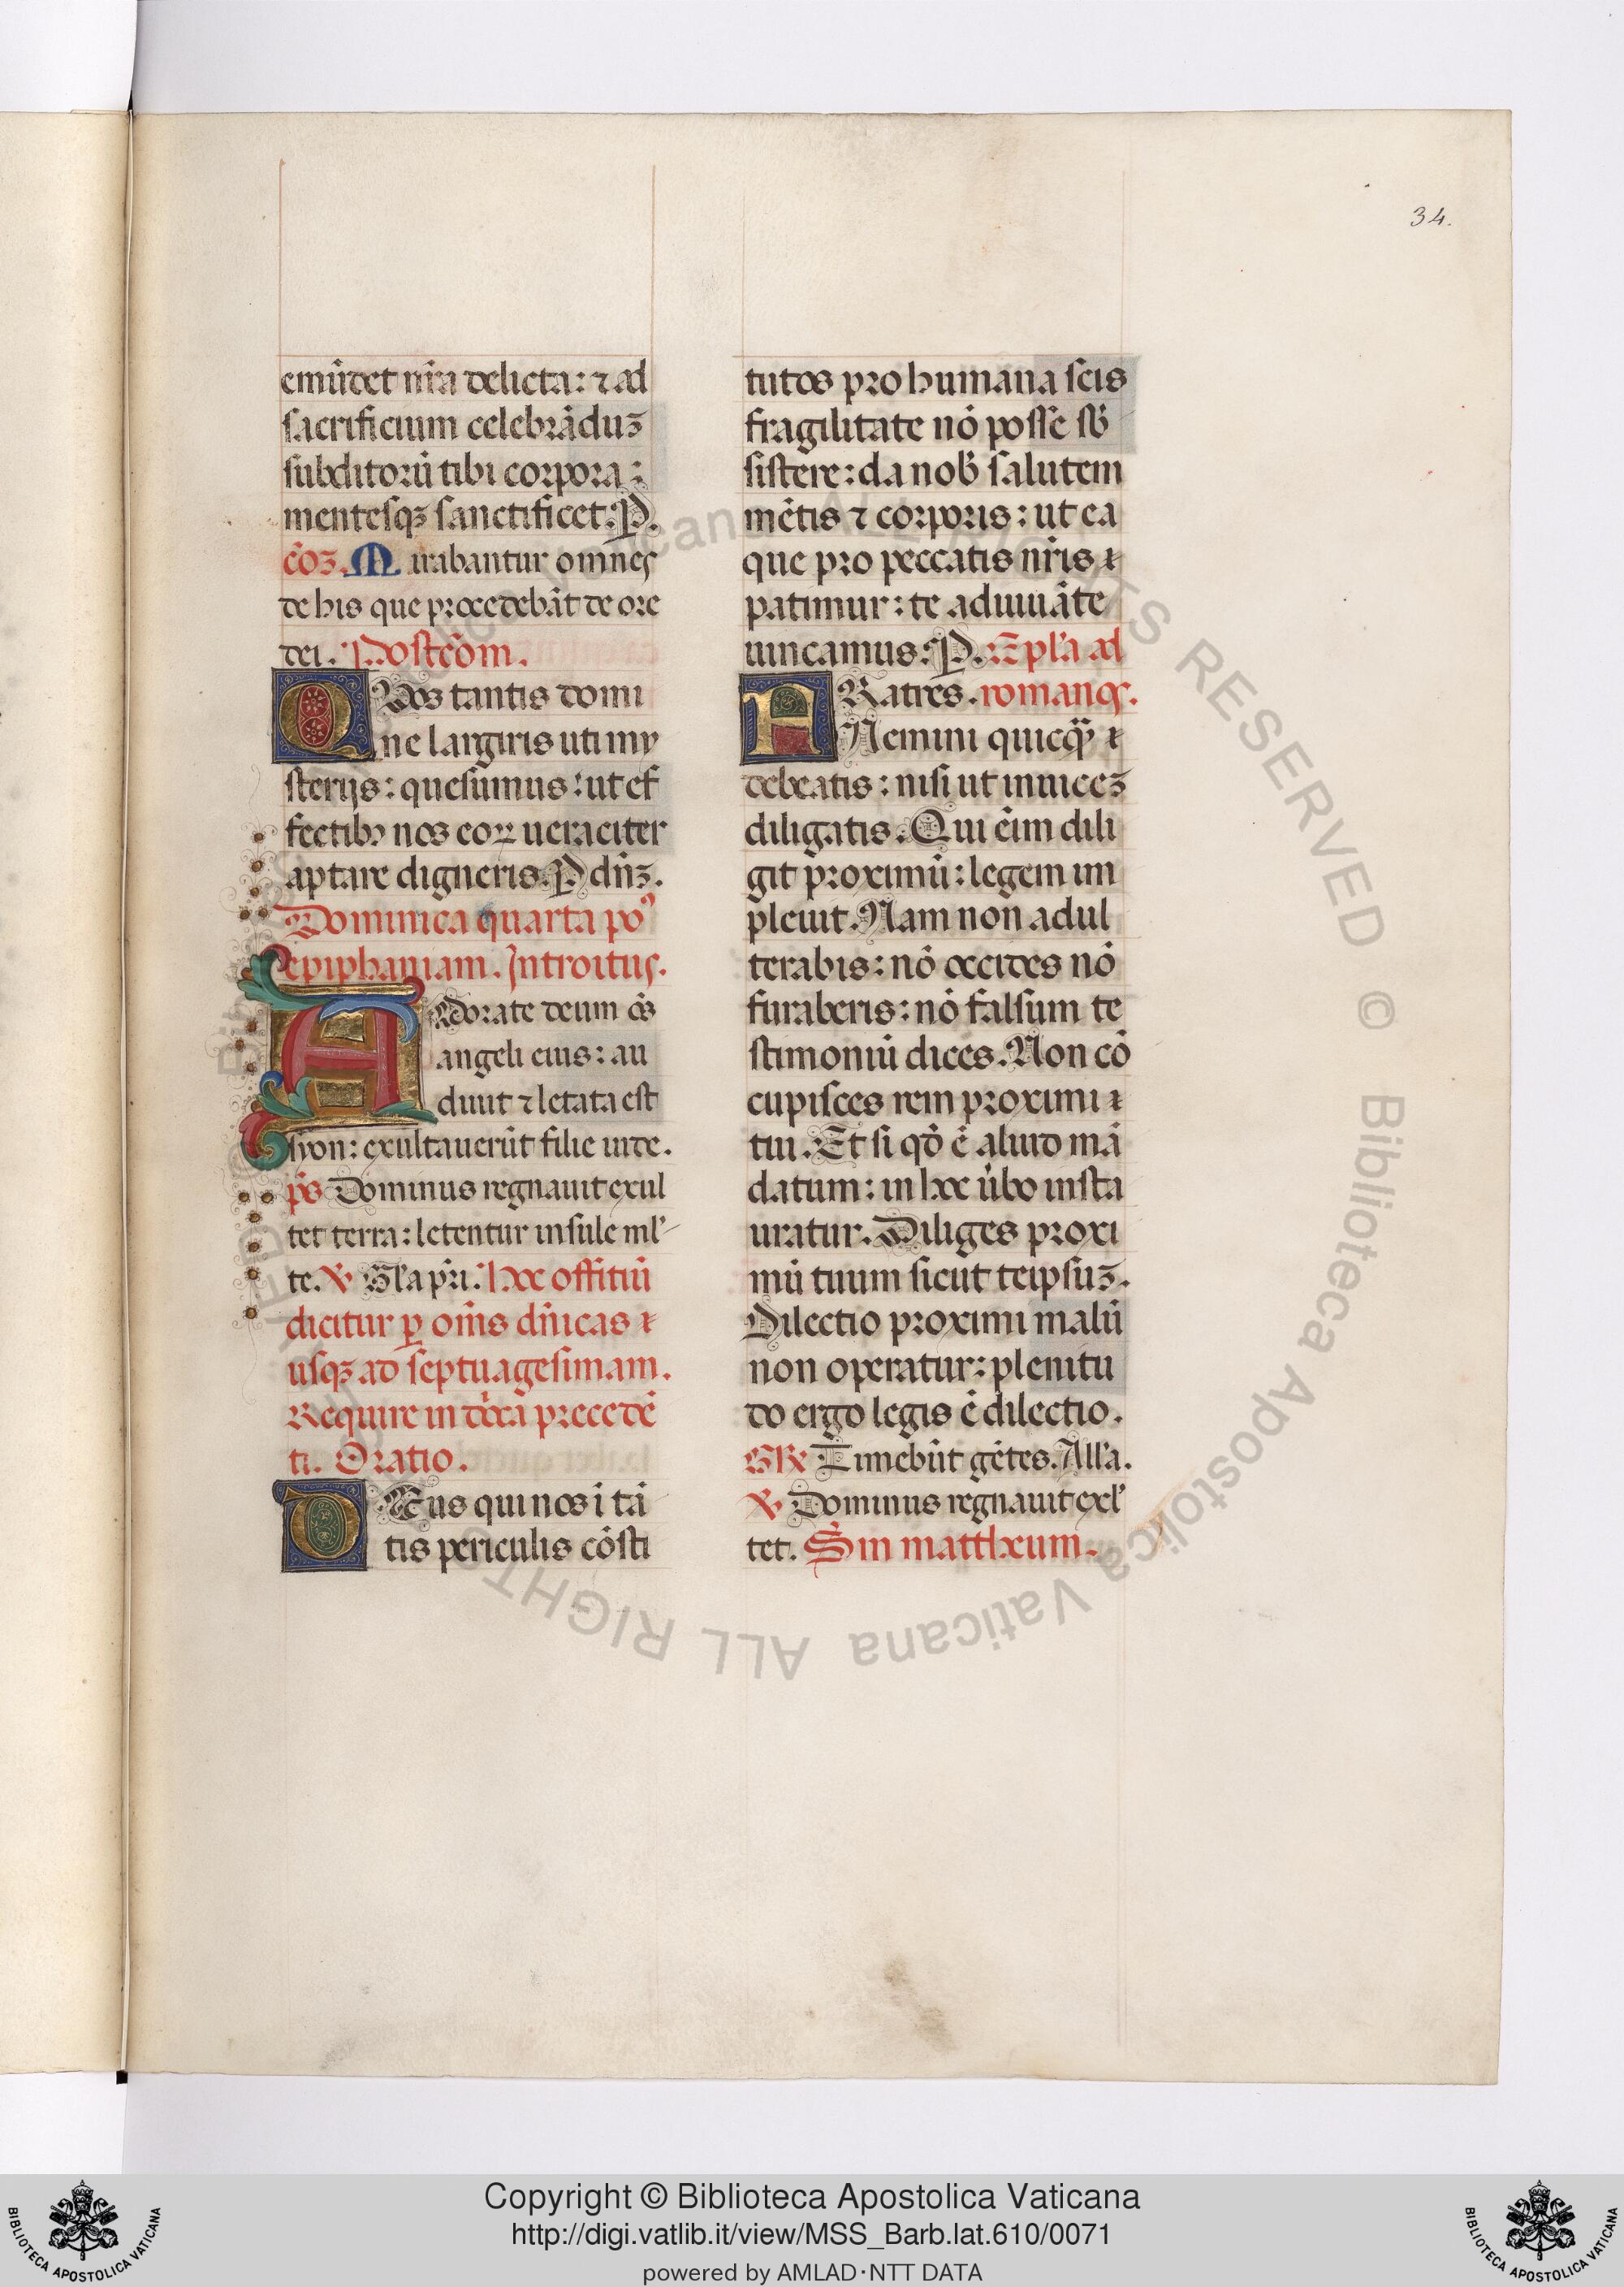 34.
emūdet nr̄a delicta: ⁊ ad
sacrificium celebrāduꝫ
subditorū tibi corpora:
mentesqꝫ sanctificet. P.
cōꝫ. Mirabantur omnes
de his que procedebāt de ore
dei. Postcōm.
QVos tantis domi
ne largiris uti my
sterijs: quesumus: ut ef
fectibꝰ nos eoꝝ ueraciter
aptare digneris. P dn̄ꝫ.
Dominica quarta poꝰ
epiphaniam. Introitus.
ADorate deum oēs
angeli eius: au
diuit ⁊ letata est
syon: exultauerūt filie iude.
ps̄ Dominus regnauit exul
tet terra: letentur insule ml̄
te. ℣ Gl̄a pr̄i. Hoc offitiū
dicitur ꝑ om̄s dn̄icas
usqꝫ ad septuagesimam.
Require in dn̄ica precedē
ti. Oratio.
DEus qui nos ī tā
tis periculis cōsti
tutos pro humana scis
fragilitate nō posse sb̄
sistere: da nob̄ salutem
mētis ⁊ corporis: ut ea
que pro peccatis nr̄is
patimur: te adiuuāte
uincamus. P. Ep̄l̄a ad
FRatres. romanos.
Nemini quicq̄
debeatis: nisi ut inuiceꝫ
diligatis. Qui eīm dili
git proximū: legem im
pleuit. Nam non adul
terabis: nō occides nō
furaberis: nō falsum te
stimoniū dices. Non cō
cupisces rem proximi
tui. Et si qd̄ ē aliud mā
datum: in hoc ūbo insta
uratur. Diliges proxi
mū tuum sicut teipsuꝫ.
Dilectio proximi malū
non operatur: plenitu
do ergo legis ē dilectio.
GR̄ Timebūt gētes. All̄a.
℣ Dominus regnauit exl̄
tet. S̄m mattheum.
Copyright © Biblioteca Apostolica Vaticana
http://digi.vatlib.it/view/MSS_Barb.lat.610/0071
powered by AMLAD·NTT DATA